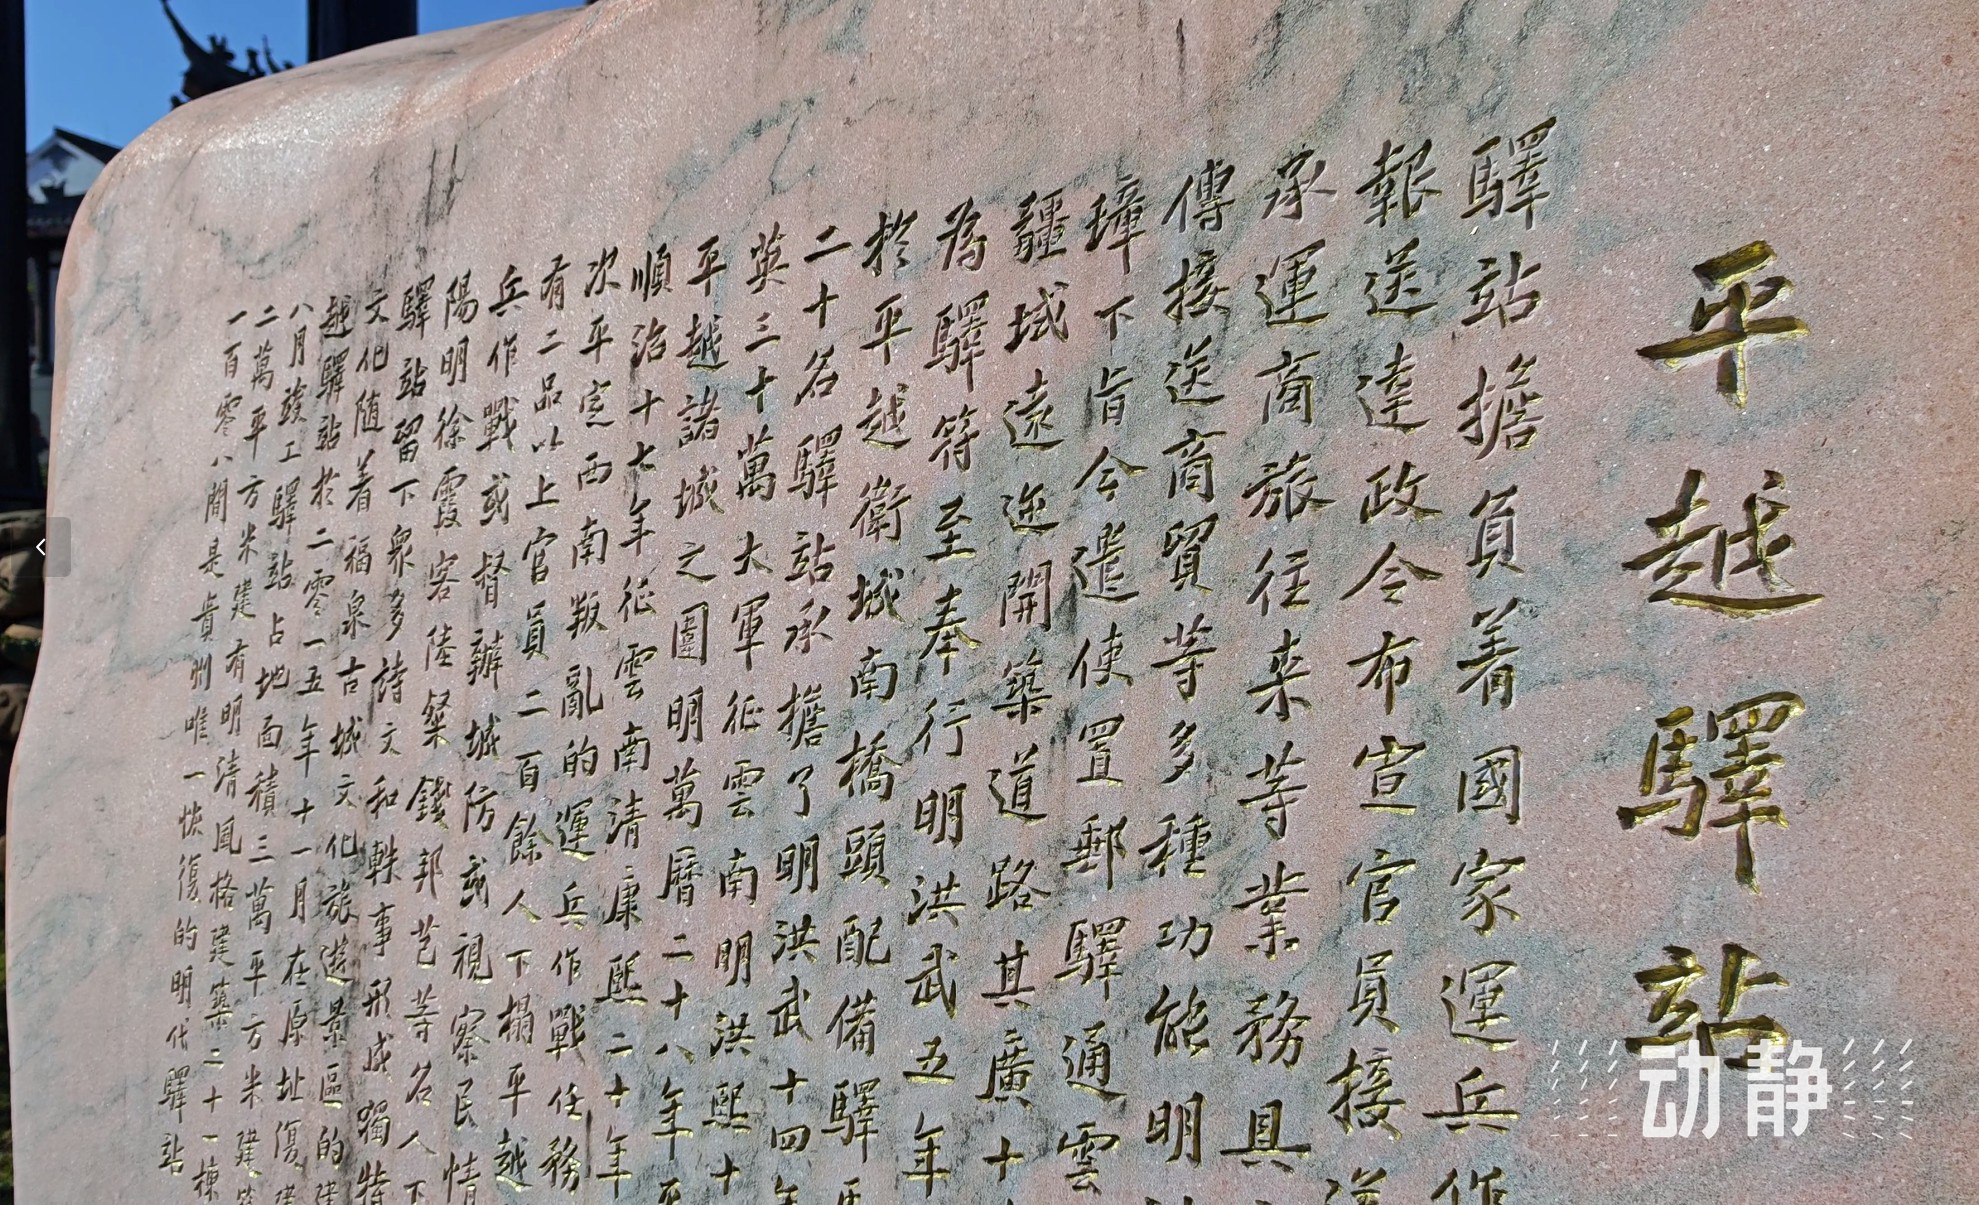 平越驛站
驛站擔負着國家運兵作
報送達政令布宣官員接送
承運商旅往来等業務具
傳接送商貿等多種功能明
璋下旨令遣使置郵驛通雲
疆域遠迩開築道路其廣十
為驛符至奉行明洪武五年
於平越衛城南橋頭配備驛馬
二十名驛站承擔了明洪武十四年
英三十萬大軍征雲南明洪熙十
平越諸城之圍明萬曆二十八年平
順治十七年征雲南清康熙二十年
次平定西南叛亂的運兵作戰任務
有二品以上官員二百餘人下榻平越
兵作戰或督辦城防或視察民情
陽明徐霞客陸粲錢邦芑等名人下
驛站留下衆多詩文和軼事形成獨特
文化随着福泉古城文化旅遊景區的建
越驛站於二零一五年十一月在原址復建
八月竣工驛站占地面積三萬平方米建築
二萬平方米建有明清風格建築二十一棟
一百零八間是貴州唯一恢復的明代驛站
动静